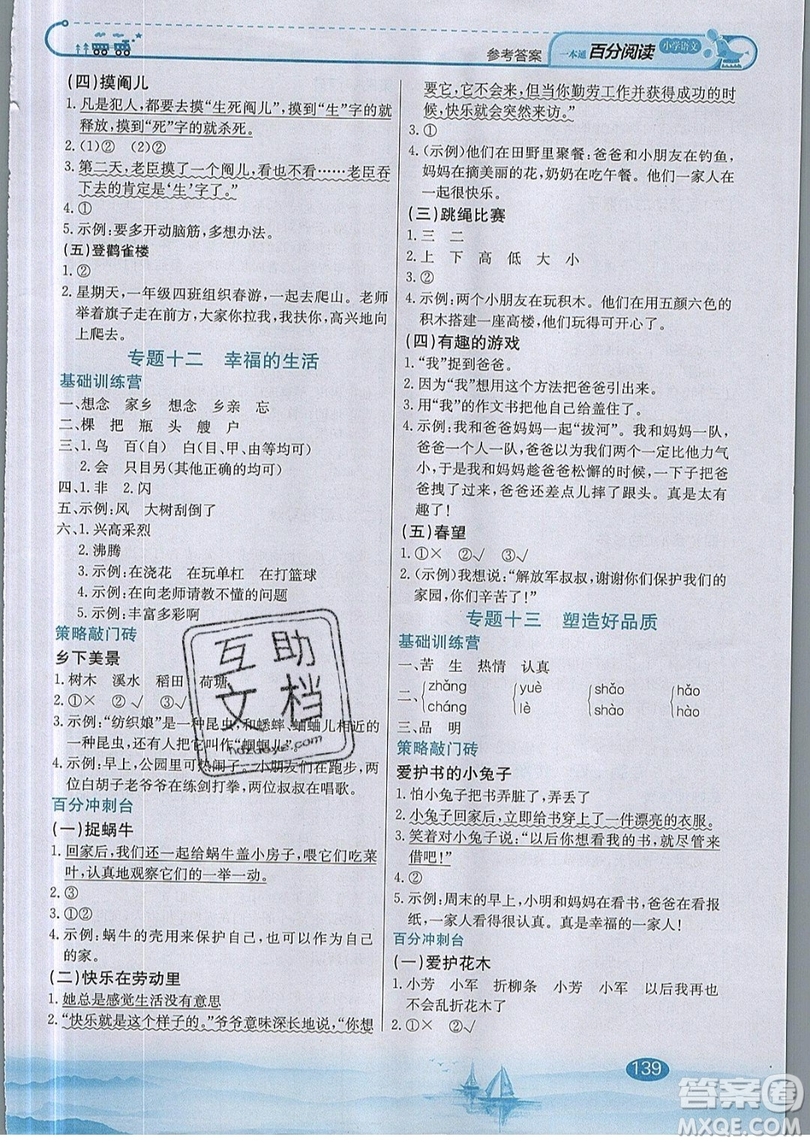 参考答案 一本通 百分阅读 小学语文
(四)摸阄儿
1. 凡是犯人，都要去摸“生死阄儿”，摸到“生”字的就
释放，摸到“死”字的就杀死。
2. (1)② (2)②
3. 第二天，老臣摸了一个阄儿，看也不看……老臣吞
下去的肯定是‘生’字了。”
4. ①
5. 示例:要多开动脑筋，多想办法。
(五)登鹳雀楼
1. ②
2. 星期天，一年级四班组织春游，一起去爬山。老师
举着旗子走在前方，大家你拉我，我扶你，高兴地向
上爬去。
专题十二 幸福的生活
基础训练营
一、想念 家乡 想念 乡亲 忘
二、棵 把 瓶 头 艘 户
三、1. 鸟 百(自) 白(目、甲、由等均可)
2. 会 只目另(其他正确的均可)
四、1. 非 2. 闪
五、示例:风 大树刮倒了
六、1. 兴高采烈
2. 沸腾
3. 示例:在浇花 在玩单杠 在打篮球
4. 示例:在向老师请教不懂的问题
5. 示例:丰富多彩啊
策略敲门砖
乡下美景
1. 树木 溪水 稻田 荷塘
2. ①× ②× ③√
3. 示例:“纺织娘”是一种昆虫，和蟋蟀、蝈蝈儿相近的
一种昆虫，还有人把它叫作“蝈蝈儿”。
4. 示例:早上，公园里可热闹了。小朋友们在跑步，两
位白胡子老爷爷在练剑打拳，两位叔叔在唱歌。
百分冲刺台
(一)捉蜗牛
1. 回家后，我们还一起给蜗牛盖小房子，喂它们吃菜
叶，认真地观察它们的一举一动。
2. ③
3. ①②
4. 示例:蜗牛的壳用来保护自己，也可以当作自己
的家。
(二)快乐在劳动里
1. 她总是感觉生活没有意思
2. “快乐就是这个样子的。”爷爷意味深长地说，“你想
要它，它偏不来，但当你勤劳工作并获得成功的时
候，快乐就会突然来访。”
3. ①
4. (示例)他们在田野里聚餐:爸爸和小朋友在钓鱼，
妈妈在摘美丽的花，奶奶在吃午餐。他们一家人
很快乐。
(三)跳绳比赛
1. 三 二
2. 上 下 高 低 大 小
3. ②
4. 示例:两个小朋友在玩积木。他们在用五颜六色的
积木搭建一座高楼。他们玩得可开心了。
(四)有趣的游戏
1. “我”捉到爸爸。
2. 因为“我”想用这个方法把爸爸引出来。
3. 用“我”的作文书把自己给盖住了。
4. 示例:我和爸爸妈妈一起“拔河”。我和妈妈一队，
爸爸一个人一队，爸爸和我们两个一定比他力气
小，于是我和妈妈趁爸爸松懈的时候，一下子把爸
爸拽了过来，爸爸还差点儿摔了跟头。真是太有
趣了！
(五)春望
1. ①× ②√ ③√
2. (示例)我想说:“解放军叔叔，谢谢你们保护我们的
家园，你们辛苦了！”
专题十三 塑造好品质
基础训练营
一、苦 生 热情 认真
二、 zhǎng yuè shǎo hǎo
cháng lè shào hào
三、品 明
策略敲门砖
爱护书的小兔子
1. 怕小兔子把书弄脏了，弄丢了
2. 小兔子回家后，立即给书穿上了一件漂亮的衣服。
3. 笑着对小兔子说:“以后你想看我的书，就尽管来
借吧！”
4. ②
5. 示例:周末的早上，小明和妈妈在看书，爸爸在看
报纸，一家人看得很认真。真是幸福的一家人！
百分冲刺台
(一)爱护花木
1. 小芳 小军 折柳条 小芳 小军 小芳和小军
不会乱折花木了
2. ①× ②√ ③√
139
互助
文档
hdzuoye.com
答案圈
MXQE.COM